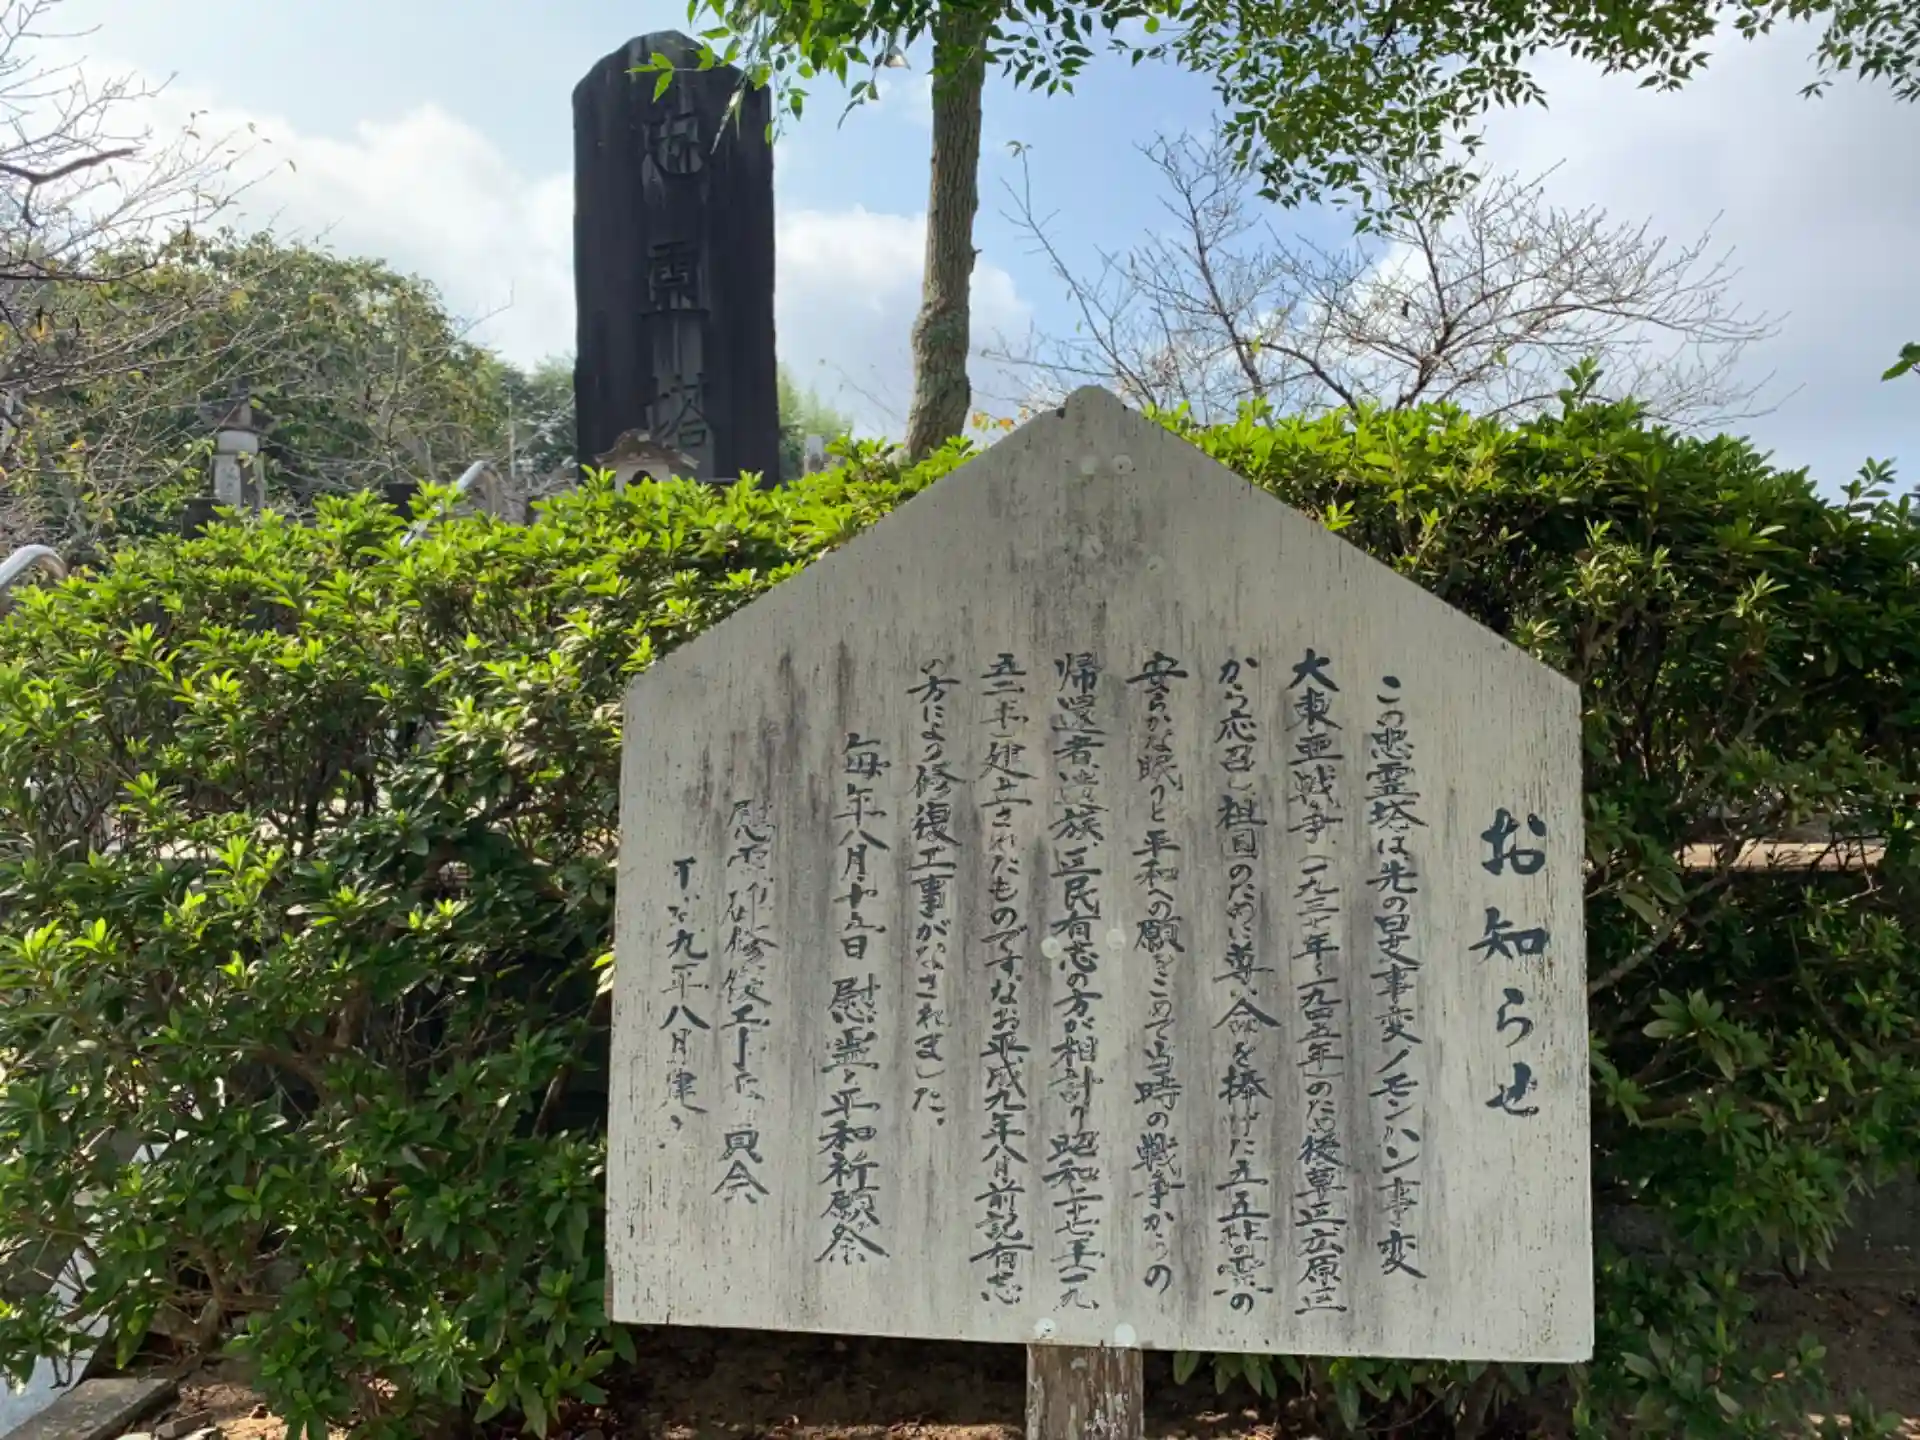 忠霊塔
お知らせ
この忠霊塔は、先の日支事変、ノモンハン事変
大東亜戦争、(一九三七年~一九四五年)のため後草区広原区
から応召し祖国のために尊い命を捧げた五五柱の霊の
安らかな眠りと平和への願をこめて当時の戦争からの
帰還者、遺族、区民有志の方が相計り昭和二十七年(一九
五二年)建立されたものです。なお平成九年八月前記有志
の方により修復工事がなされました。
毎年八月十五日 慰霊と平和祈願祭
慰霊碑修復工事 員会
平成九年八月建